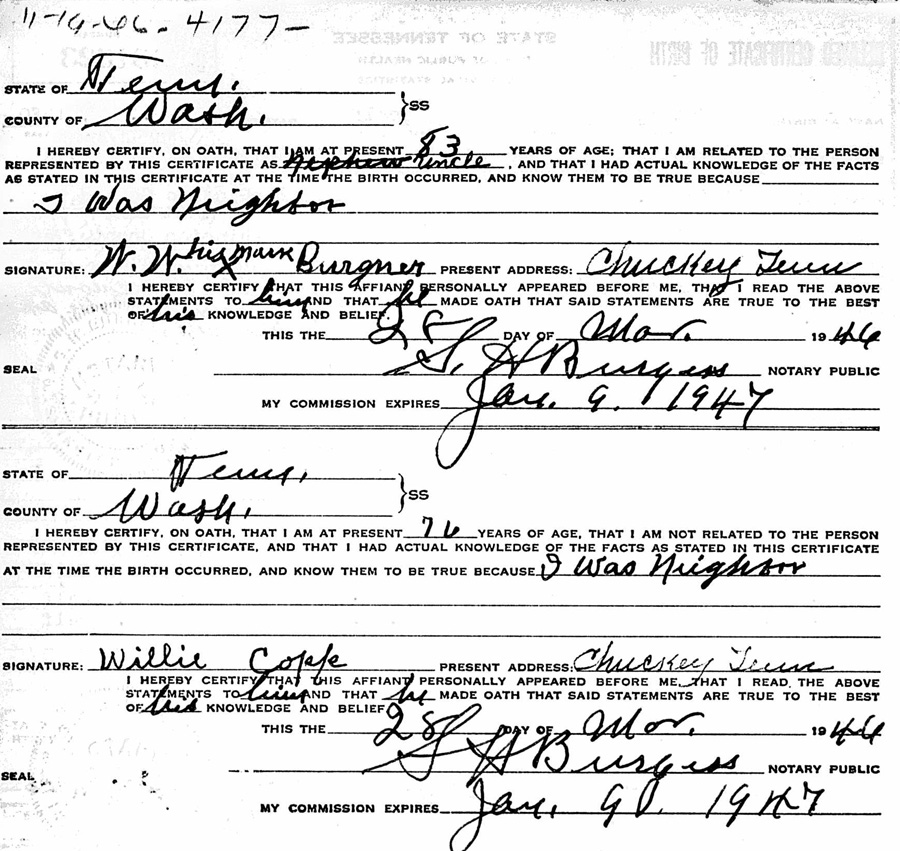 11-19-46-4177-
STATE OF TENNESSEE
CERTIFICATE OF BIRTH
STATE OF Tenn.
COUNTY OF Wash. } SS
I HEREBY CERTIFY, ON OATH, THAT I AM AT PRESENT 83 YEARS OF AGE; THAT I AM RELATED TO THE PERSON
REPRESENTED BY THIS CERTIFICATE AS Nephew Uncle, AND THAT I HAD ACTUAL KNOWLEDGE OF THE FACTS
AS STATED IN THIS CERTIFICATE AT THE TIME THE BIRTH OCCURRED, AND KNOW THEM TO BE TRUE BECAUSE
I Was Neighbor
SIGNATURE: W. W. his X mark Burgner PRESENT ADDRESS: Chuckey Tenn
I HEREBY CERTIFY THAT THIS AFFIANT PERSONALLY APPEARED BEFORE ME, THAT I READ THE ABOVE
STATEMENTS TO him AND THAT he MADE OATH THAT SAID STATEMENTS ARE TRUE TO THE BEST
OF his KNOWLEDGE AND BELIEF.
THIS THE 28 DAY OF Mar. 1946
SEAL S. H Burgess NOTARY PUBLIC
MY COMMISSION EXPIRES Jan. 9. 1947
STATE OF Tenn.
COUNTY OF Wash. } SS
I HEREBY CERTIFY, ON OATH, THAT I AM AT PRESENT 76 YEARS OF AGE, THAT I AM NOT RELATED TO THE PERSON
REPRESENTED BY THIS CERTIFICATE, AND THAT I HAD ACTUAL KNOWLEDGE OF THE FACTS AS STATED IN THIS CERTIFICATE
AT THE TIME THE BIRTH OCCURRED, AND KNOW THEM TO BE TRUE BECAUSE I Was Neighbor
SIGNATURE: Willie Copp PRESENT ADDRESS: Chuckey Tenn
I HEREBY CERTIFY THAT THIS AFFIANT PERSONALLY APPEARED BEFORE ME, THAT I READ THE ABOVE
STATEMENTS TO him AND THAT he MADE OATH THAT SAID STATEMENTS ARE TRUE TO THE BEST
OF his KNOWLEDGE AND BELIEF.
THIS THE 28 DAY OF Mar. 1946
SEAL S H Burgess NOTARY PUBLIC
MY COMMISSION EXPIRES Jan. 9 1947